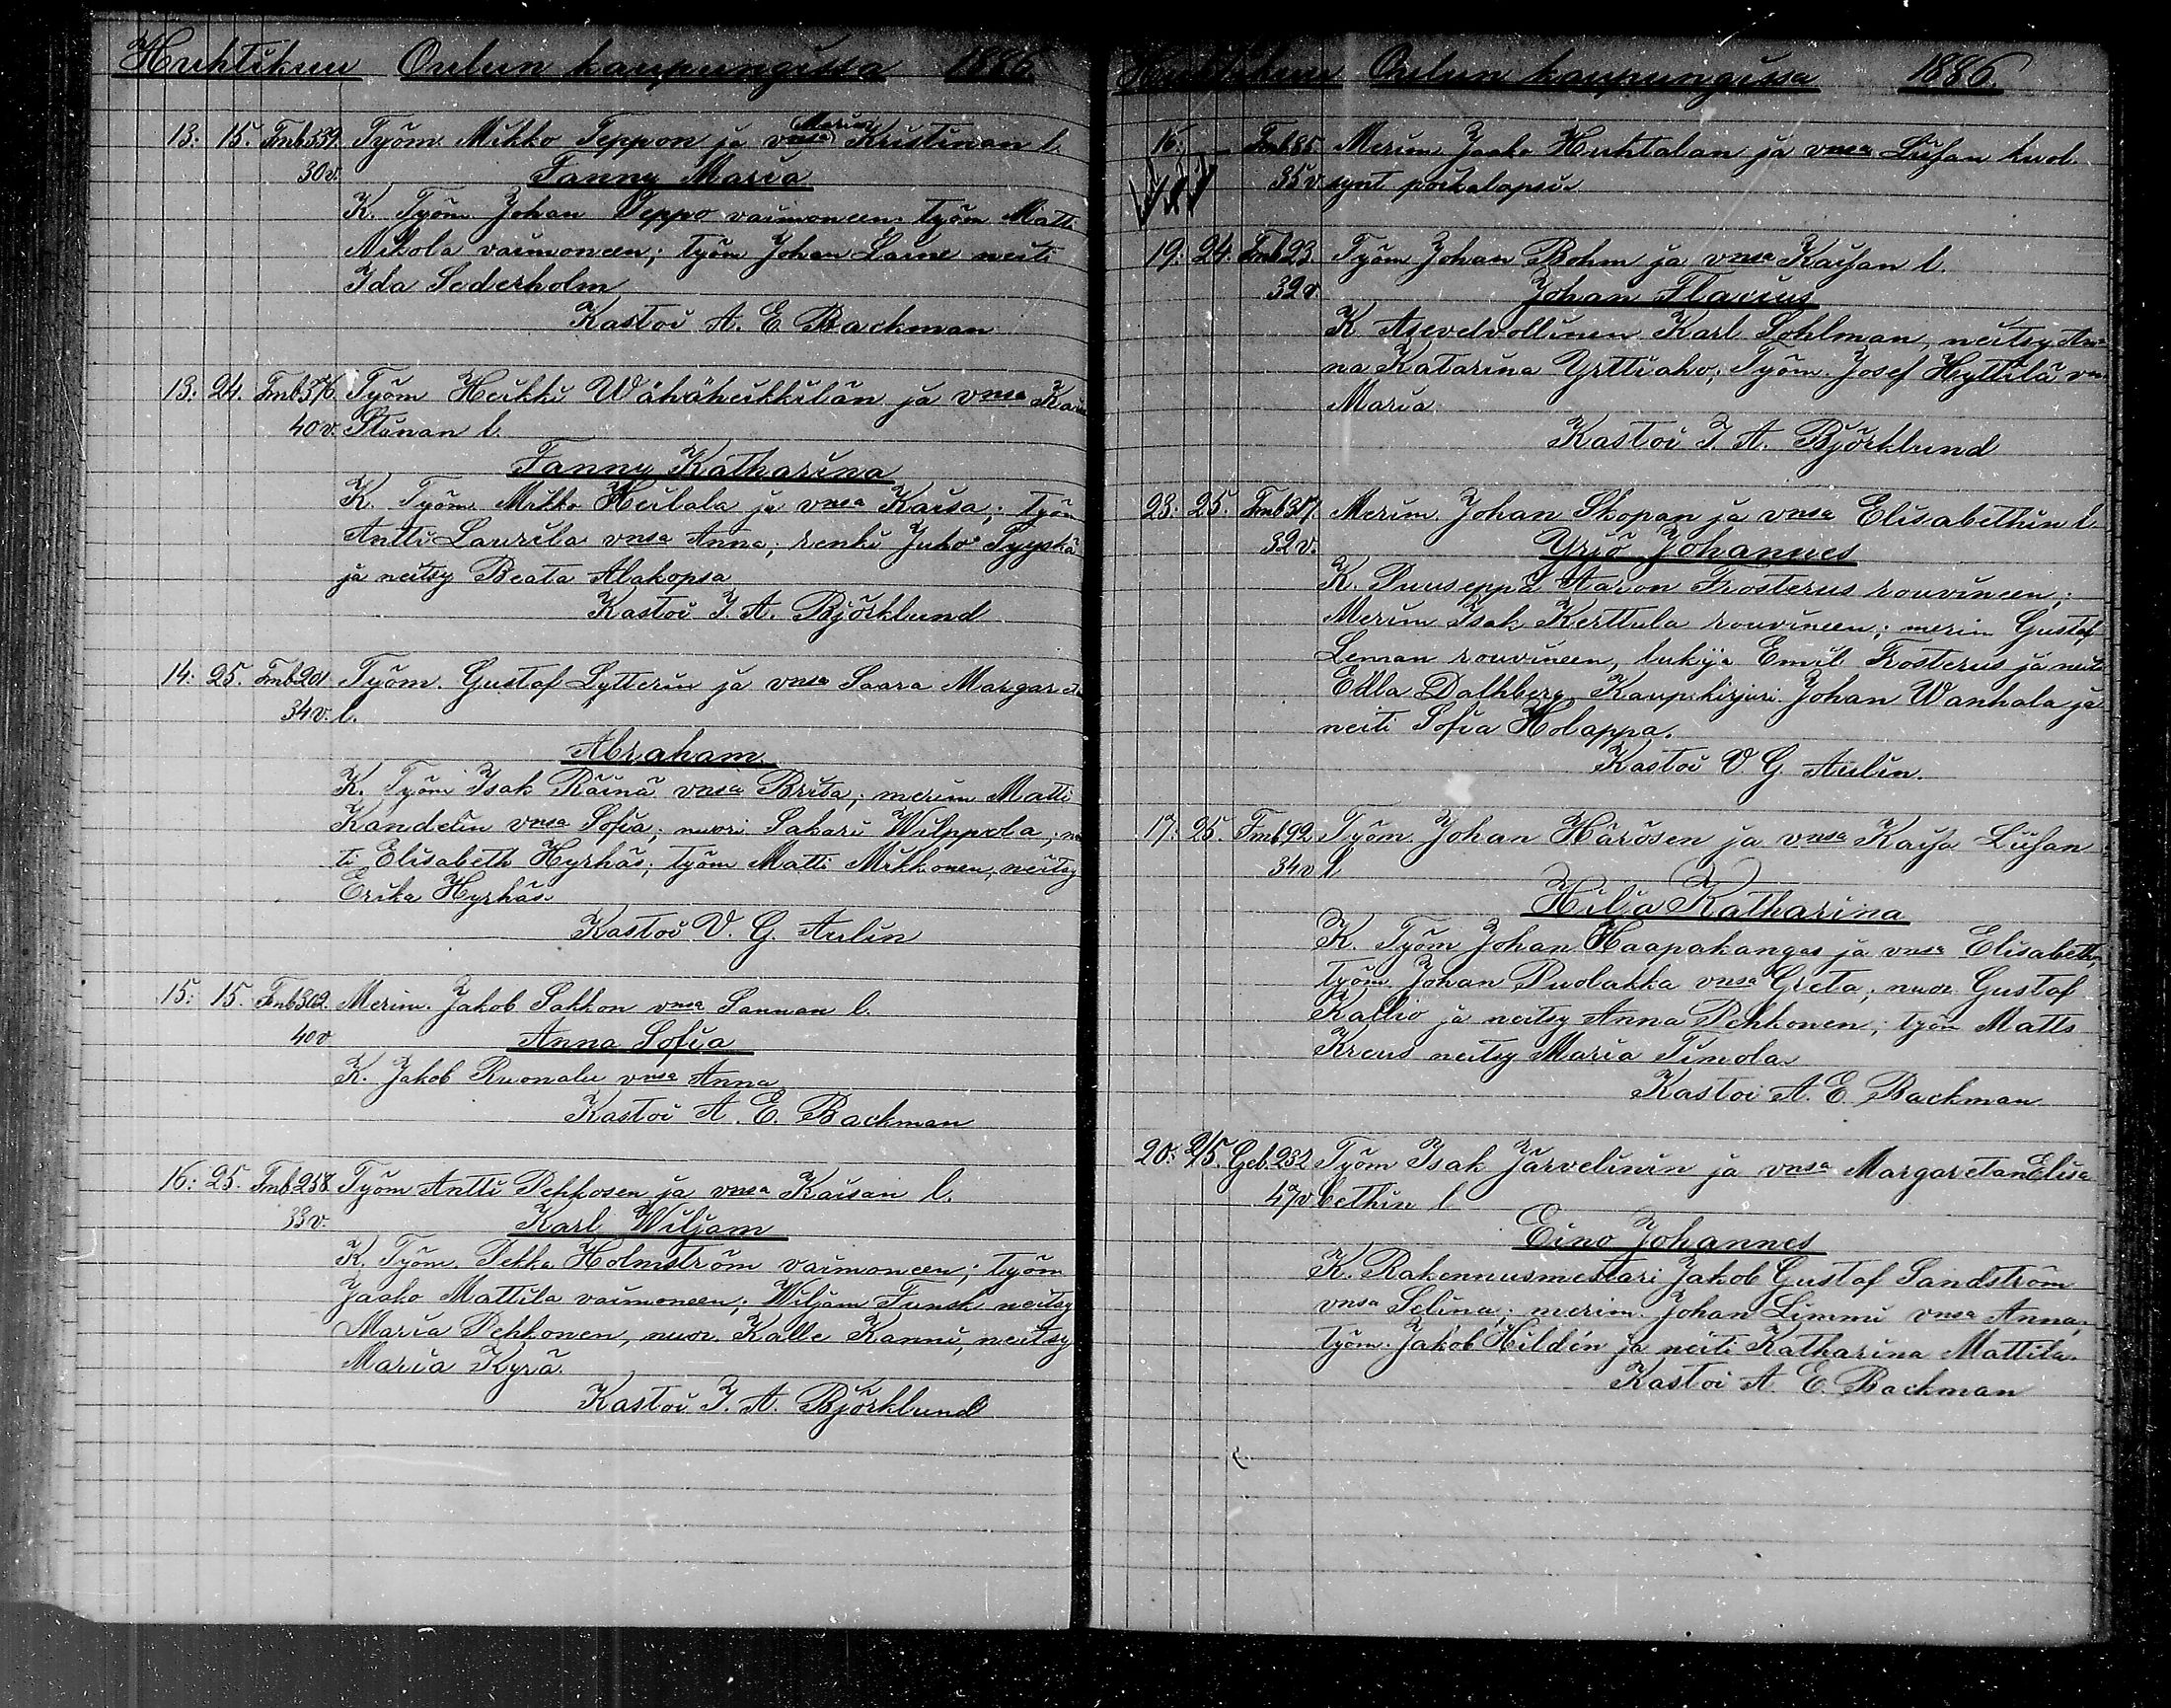 Huhtikuu Oulun kaupungissa 1886.
13: 15. Fmb 539. Työm. Mikko Teppon ja vnsa Maria Kristinan l.
30 v. Fanny Maria
K. Työm Johan Teppo vaimoneen työm Matti
Nikola vaimoneen; työm Johan Laine neiti
Ida Sederholm
Kastoi A. E. Backman
13. 24. Fmb 376. Työm Heikki Wähäheikkilän ja vnsa
40 v. Stinan l.
Fanny Katharina
K. Työm. Mikko Heilala ja vnsa Kaisa; työm
Antti Laurila vnsa Anna; renki Juho
ja neitsy Beata Alakopsa
Kastoi I. A. Björklund
14: 25. Fmb 201 Työm. Gustaf Lytterin ja vnsa Saara
34 v. l.
Abraham
K. Työm Isak Räinä vnsa Brita; merim Matti
Kandelin vnsa Sofia; nuori Sakari Wilppola;
ti Elisabeth Hyrkäs; työm Matti Mikkonen, neitsy
Erika Hyrkäs.
Kastoi V. G. Aulin
15: 15. Fmb 302. Merim. Jakob Sakkon vnsa Sannan l.
40 v Anna Sofia
K. Jakob Ruonala vnsa Anna
Kastoi A. E. Backman
16: 25. Fmb 258. Työm Antti Pehkosen ja vnsa Kaisan l.
33 v. Karl Wiljam
K. Työm. Pekka Holmström vaimoneen; työm
Jaako Mattila vaimoneen; Wiljam Funsk neitsy
Maria Pehkonen, nuor. Kalle Kanni, neitsy
Maria Kyrä.
Kastoi I. A. Björklund
Huhtikuu Oulun kaupungissa 1886.
16: Fmb 85 Merim. Jaako Huhtalan ja vnsa Liisan kuol.
35 v. synt poikalapsi.
19: 24. Fmb 23. Työm Johan Bohm ja vnsa Kaisan l.
32 v. Johan
K Asevelvollinen Karl Sohlman, neitsy An-
na Katarina Yrttiaho; Työm. Josef Hyttilä
Maria
Kastoi I. A. Björklund
23: 25. Fmb 317 Merim. Johan Skopan ja vnsa Elisabethin l.
32 v. Yrjö Johannes
K. Puuseppä Aaron Frosterus rouvineen;
Merim Isak Kerttula rouvineen; merim Gustaf
Leman rouvineen, lukija Emil Frosterus ja
Edla Dalhberg Kaup.kirjuri Johan Wanhala ja
neiti Sofia Holappa.
Kastoi V. G. Aulin.
17: 25. Fmb 92 Työm. Johan Härösen ja vnsa Kaisa Liisan
34 v l
Hilja Katharina
K. Työm Johan Haapakangas ja vnsa Elisabeth;
työm Johan Puolakka vnsa Greta; nuor. Gustaf
Kallio ja neitsy Anna Pehkonen; työm Matts
Kreus neitsy Maria Timola.
Kastoi A. E. Backman
20: 2/5. Geb. 232 Työm Isak Järvelinin ja vnsa Margaretan Elisa
47 v bethin l.
Eino Johannes
K. Rakennusmestari Jakob Gustaf Sandström
vnsa Selina; merim. Johan Limmi vnsa Anna,
työm. Jakob Hildén ja neiti Katharina Mattila.
Kastoi A. E. Backman